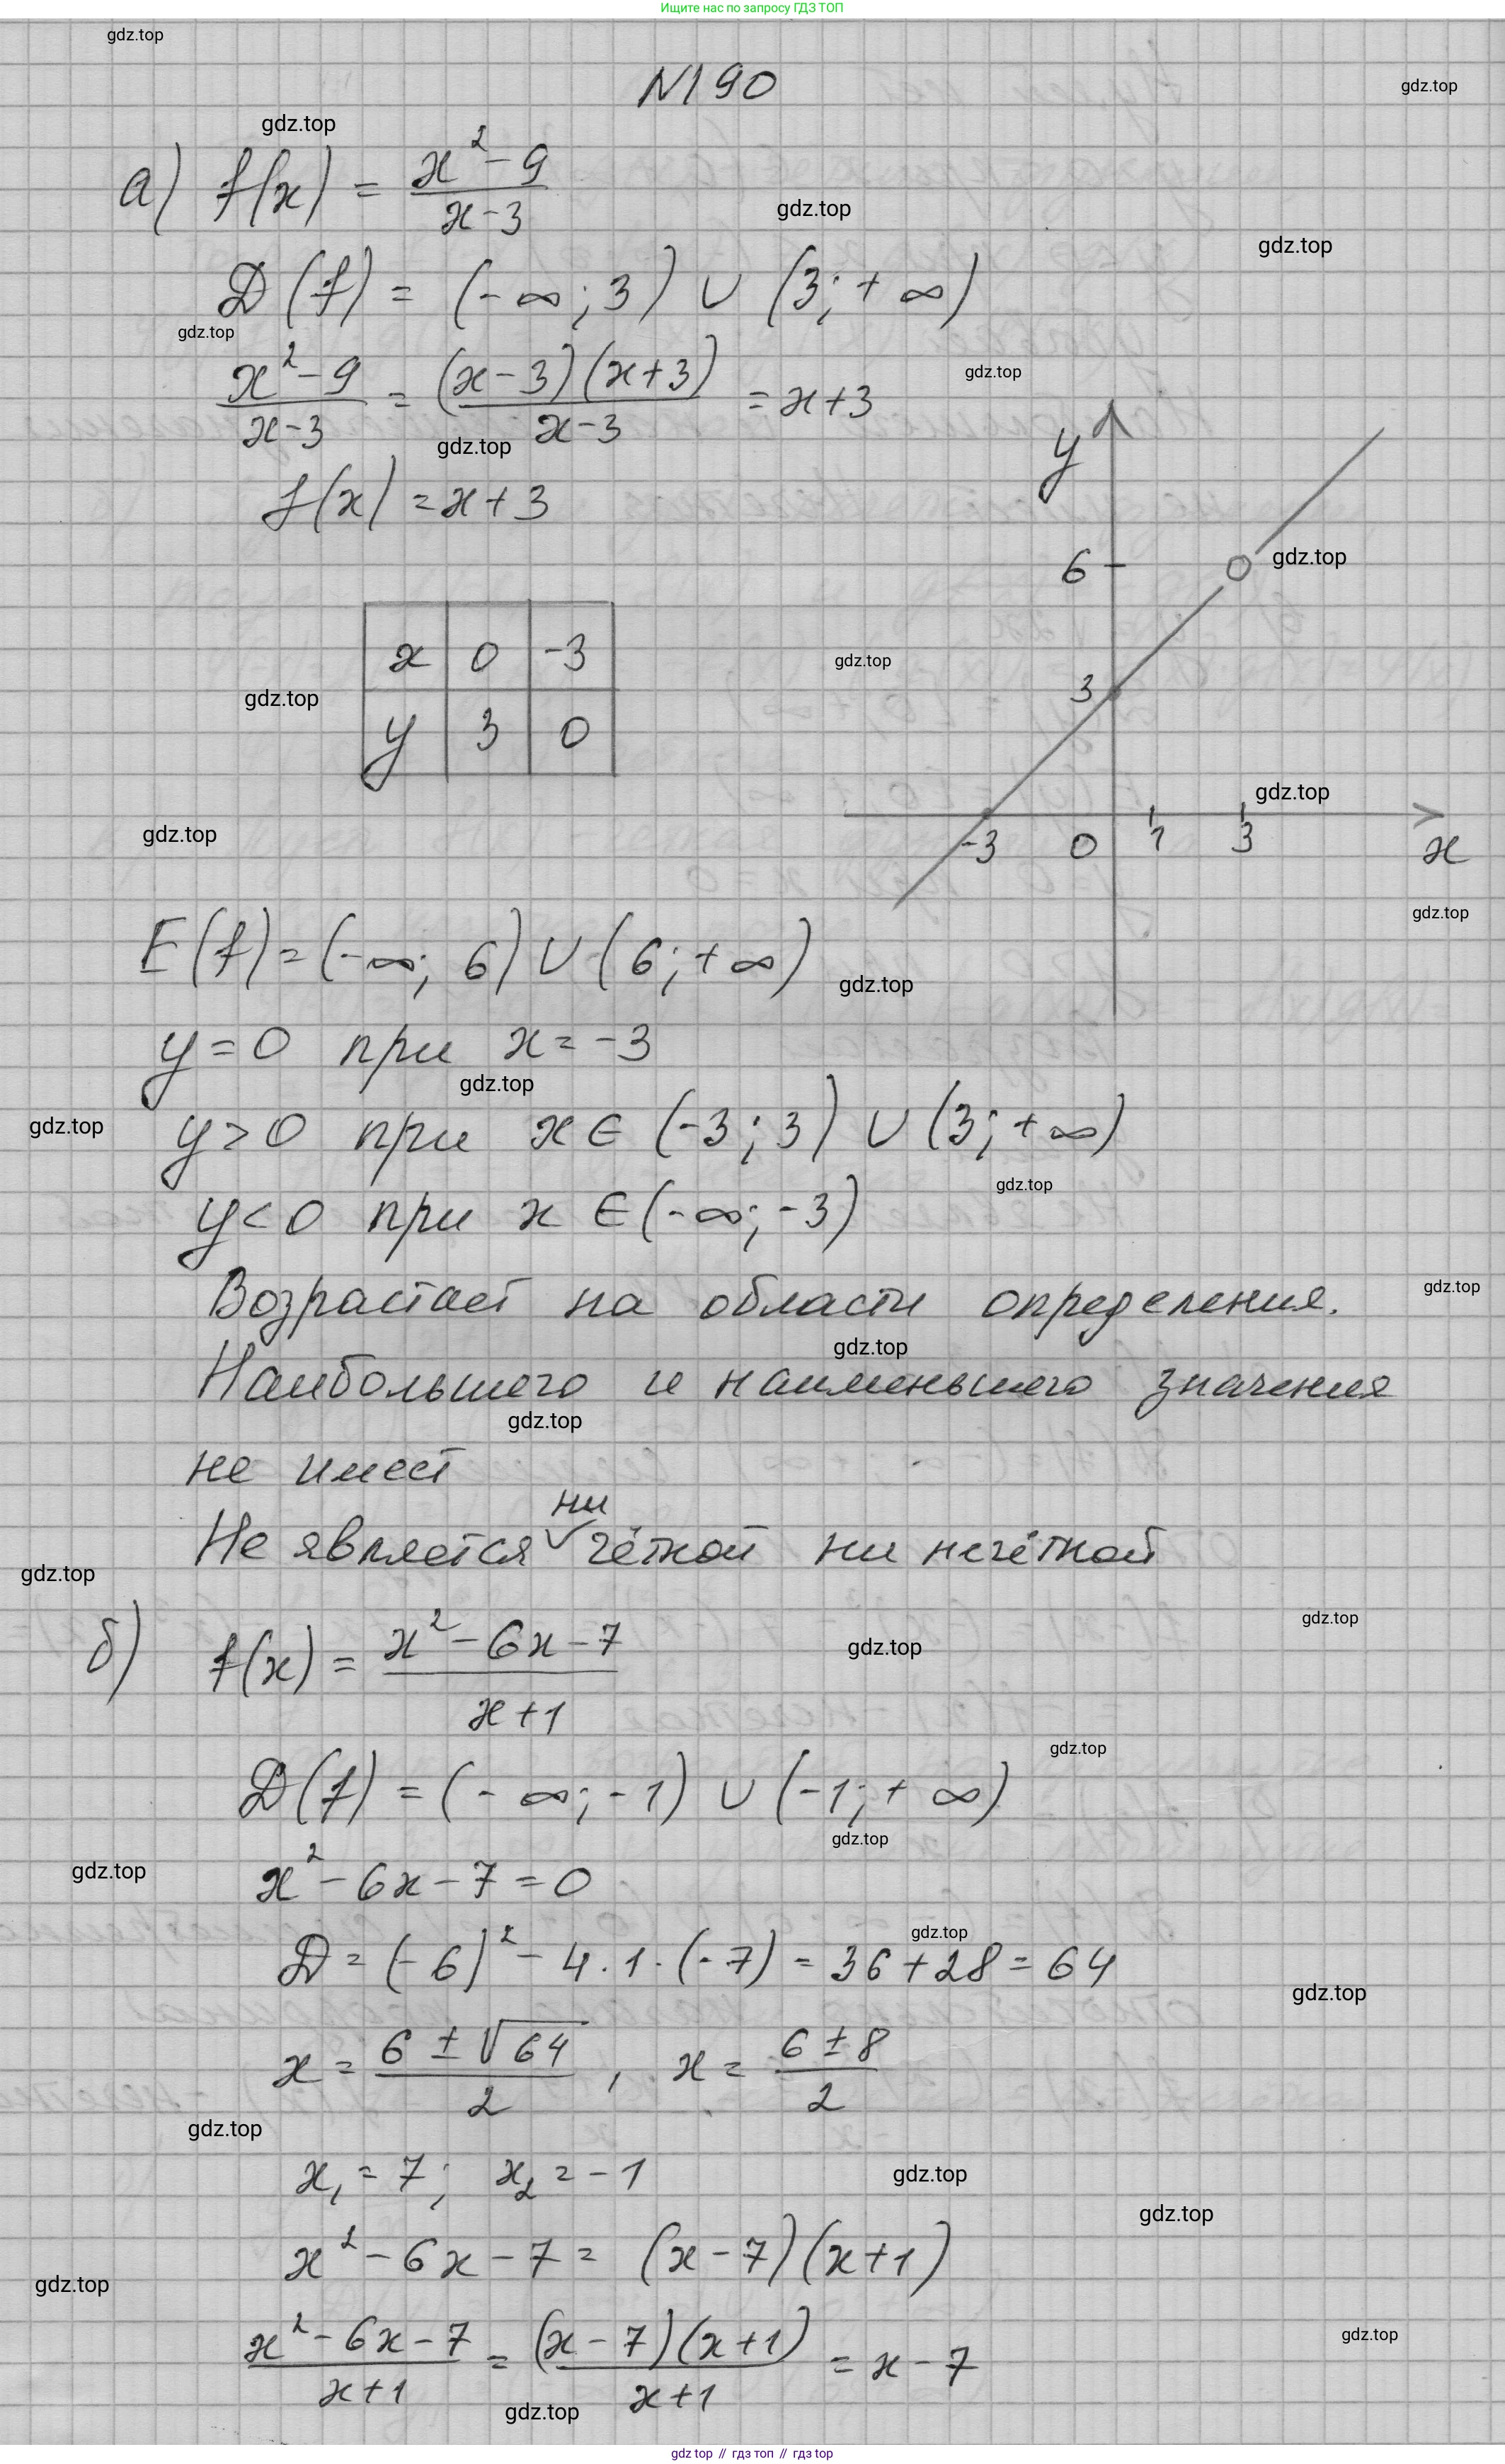 Ищите нас по запросу ГДЗ ТОП
gdz.top
N190
gdz.top
gdz.top
а) f(x) = (x² - 9)/(x - 3)
gdz.top
gdz.top
D(f) = (-∞; 3) ∪ (3; +∞)
gdz.top
(x² - 9)/(x - 3) = ((x - 3)(x + 3))/(x - 3) = x + 3
gdz.top
gdz.top
f(x) = x + 3
y
6
gdz.top
x 0 -3
gdz.top
y 3 0
gdz.top
3
gdz.top
gdz.top
-3 0 1 3 x
gdz.top
E(f) = (-∞; 6) ∪ (6; +∞)
gdz.top
y = 0 при x = -3
gdz.top
gdz.top
y > 0 при x ∈ (-3; 3) ∪ (3; +∞)
gdz.top
y < 0 при x ∈ (-∞; -3)
Возрастает на области определения.
gdz.top
gdz.top
Наибольшего и наименьшего значения
gdz.top
не имеет
Не является ни чётной ни нечётной
gdz.top
gdz.top
б) f(x) = (x² - 6x - 7)/(x + 1)
gdz.top
gdz.top
D(f) = (-∞; -1) ∪ (-1; +∞)
gdz.top
gdz.top
x² - 6x - 7 = 0
gdz.top
D = (-6)² - 4 · 1 · (-7) = 36 + 28 = 64
gdz.top
x = (6 ± √64)/2 , x = (6 ± 8)/2
gdz.top
x₁ = 7; x₂ = -1
gdz.top
gdz.top
x² - 6x - 7 = (x - 7)(x + 1)
gdz.top
(x² - 6x - 7)/(x + 1) = ((x - 7)(x + 1))/(x + 1) = x - 7
gdz.top
gdz.top
gdz top // гдз топ // gdz.top